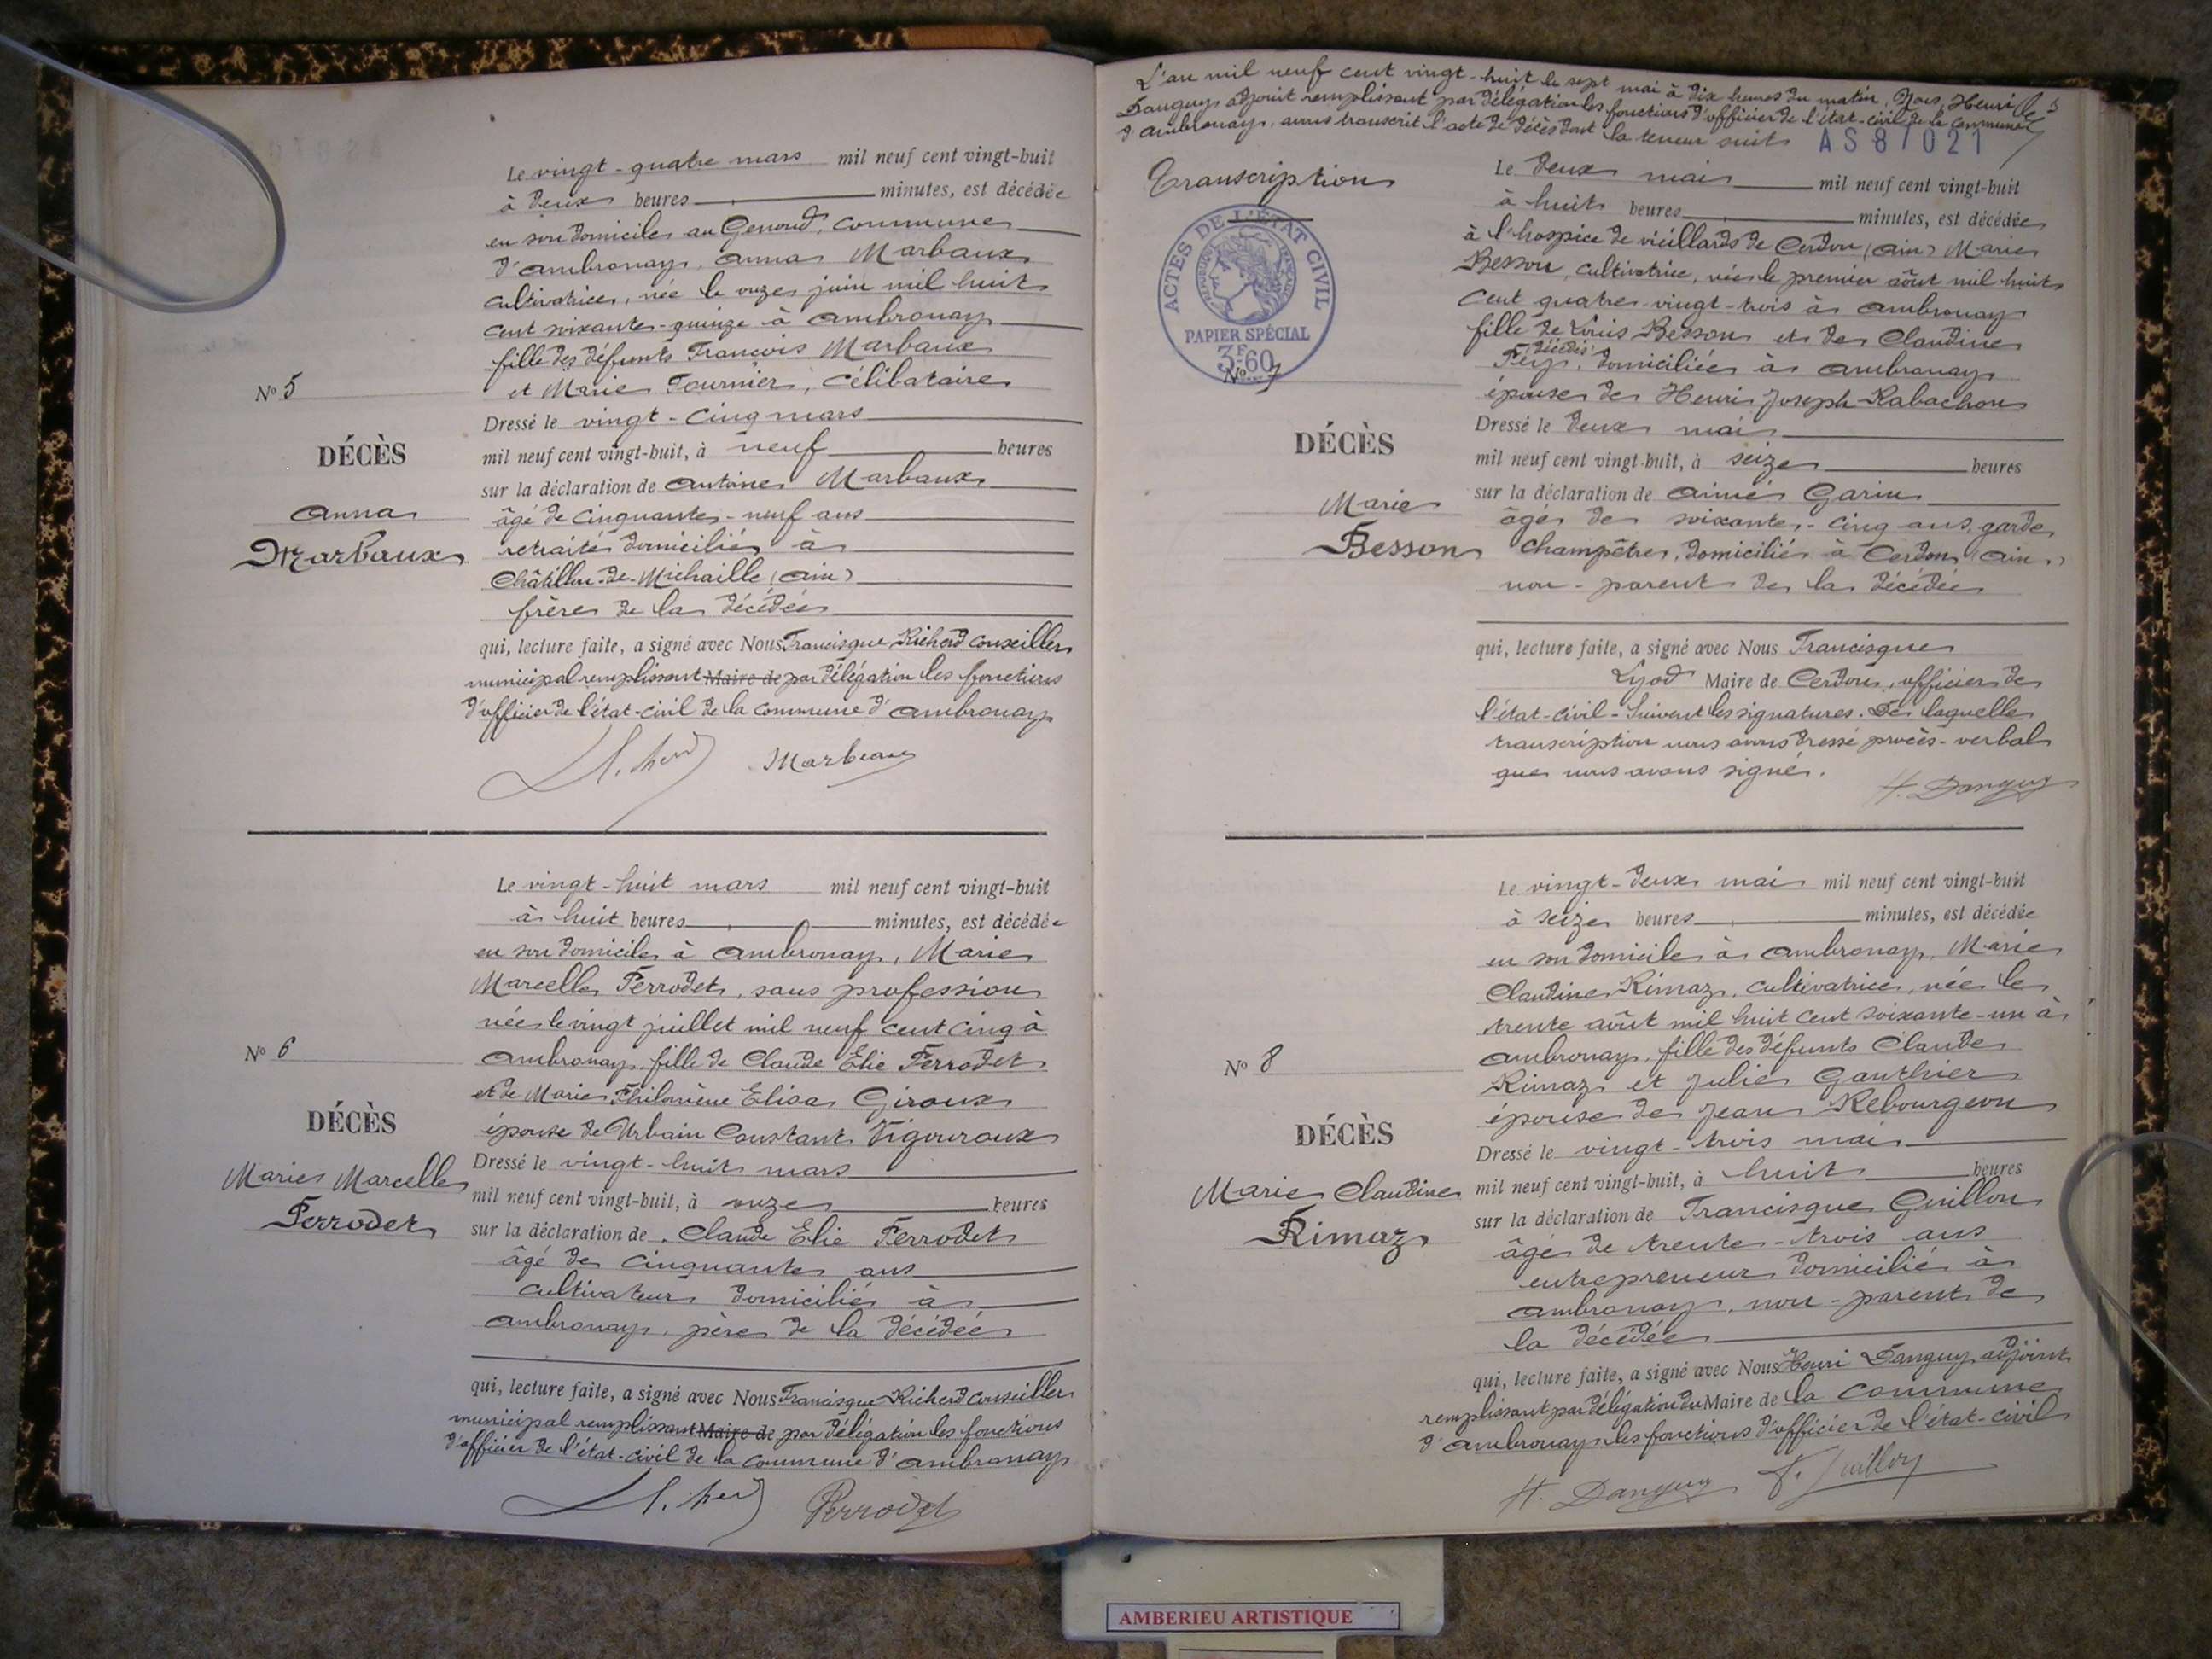 Le vingt-quatre mars mil neuf cent vingt-huit
à deux heures minutes, est décédée
en son domicile au Genoud, commune
d'ambronay, anna Marbaux
cultivatrice, née le onze juin mil huit
cent soixante-quinze à ambronay
fille des défunts François Marbaux
et Marie Fournier, célibataire
Dressé le vingt-cinq mars
mil neuf cent vingt-huit, à neuf heures
sur la déclaration de antoine Marbaux
âgé de cinquante-neuf ans
retraité domicilié à
Châtillon-de-Michaille (ain)
frère de la décédée
qui, lecture faite, a signé avec Nous Francisque Richerd conseiller
municipal remplissant Maire de par délégation les fonctions
d'officier de l'état-civil de la commune d'ambronay
Marbeaux
No 5
DÉCÈS
anna
Marbaux
Le vingt-huit mars mil neuf cent vingt-huit
à huit heures minutes, est décédée
en son domicile à ambronay, Marie
Marcelle Perrodet, sans profession
née le vingt juillet mil neuf cent cinq à
ambronay, fille de Claude Elie Perrodet
et de Marie Philomène Elisa Giroux
épouse de Urbain Constant Vigouroux
Dressé le vingt-huit mars
mil neuf cent vingt-huit, à onze heures
sur la déclaration de Claude Elie Perrodet
âgé de cinquante ans
cultivateur domicilié à
ambronay, père de la décédée
qui, lecture faite, a signé avec Nous Francisque Richerd conseiller
municipal remplissant Maire de par délégation les fonctions
d'officier de l'état-civil de la commune d'ambronay
Perrodet
No 6
DÉCÈS
Marie Marcelle
Perrodet
L'an mil neuf cent vingt-huit le sept mai à dix heures du matin, Nous, Henri
Danguy adjoint remplissant par délégation les fonctions d'officier de l'état-civil de la commune
d'ambronay, avons transcrit l'acte de décès dont la teneur suit
AS 87021
Transcription
ACTES DE L'ÉTAT CIVIL
RÉPUBLIQUE FRANÇAISE
PAPIER SPÉCIAL
3F60
No 7
DÉCÈS
Marie
Besson
Le deux mai mil neuf cent vingt-huit
à huit heures minutes, est décédée
à l'hospice de vieillards de Cerdon (ain) Marie
Besson, cultivatrice, née le premier août mil huit
cent quatre-vingt-trois à ambronay
fille de Louis Besson et de Claudine
décédés
Féry, domiciliée à ambronay
épouse de Henri Joseph Rabachon
Dressé le deux mai
mil neuf cent vingt-huit, à seize heures
sur la déclaration de aimé Garin
âgé de soixante-cinq ans, garde
champêtre, domicilié à Cerdon (ain)
non-parent de la décédée
qui, lecture faite, a signé avec Nous Francisque
Lyod Maire de Cerdon, officier de
l'état-civil - Suivent les signatures. De laquelle
transcription nous avons dressé procès-verbal
que nous avons signé.
H. Danguy
Le vingt-deux mai mil neuf cent vingt-huit
à seize heures minutes, est décédée
en son domicile à ambronay, Marie
Claudine Rimaz, cultivatrice, née le
trente août mil huit cent soixante-un à
ambronay, fille des défunts Claude
Rimaz et Julie Gauthier
épouse de Jean Rebourgeon
Dressé le vingt-trois mai
mil neuf cent vingt-huit, à huit heures
sur la déclaration de Francisque Guillon
âgé de trente-trois ans
entrepreneur domicilié à
ambronay, non-parent de
la décédée
qui, lecture faite, a signé avec Nous Henri Danguy adjoint
remplissant par délégation du Maire de la commune
d'ambronay les fonctions d'officier de l'état-civil
H. Danguy F. Guillon
No 8
DÉCÈS
Marie Claudine
Rimaz
AMBERIEU ARTISTIQUE